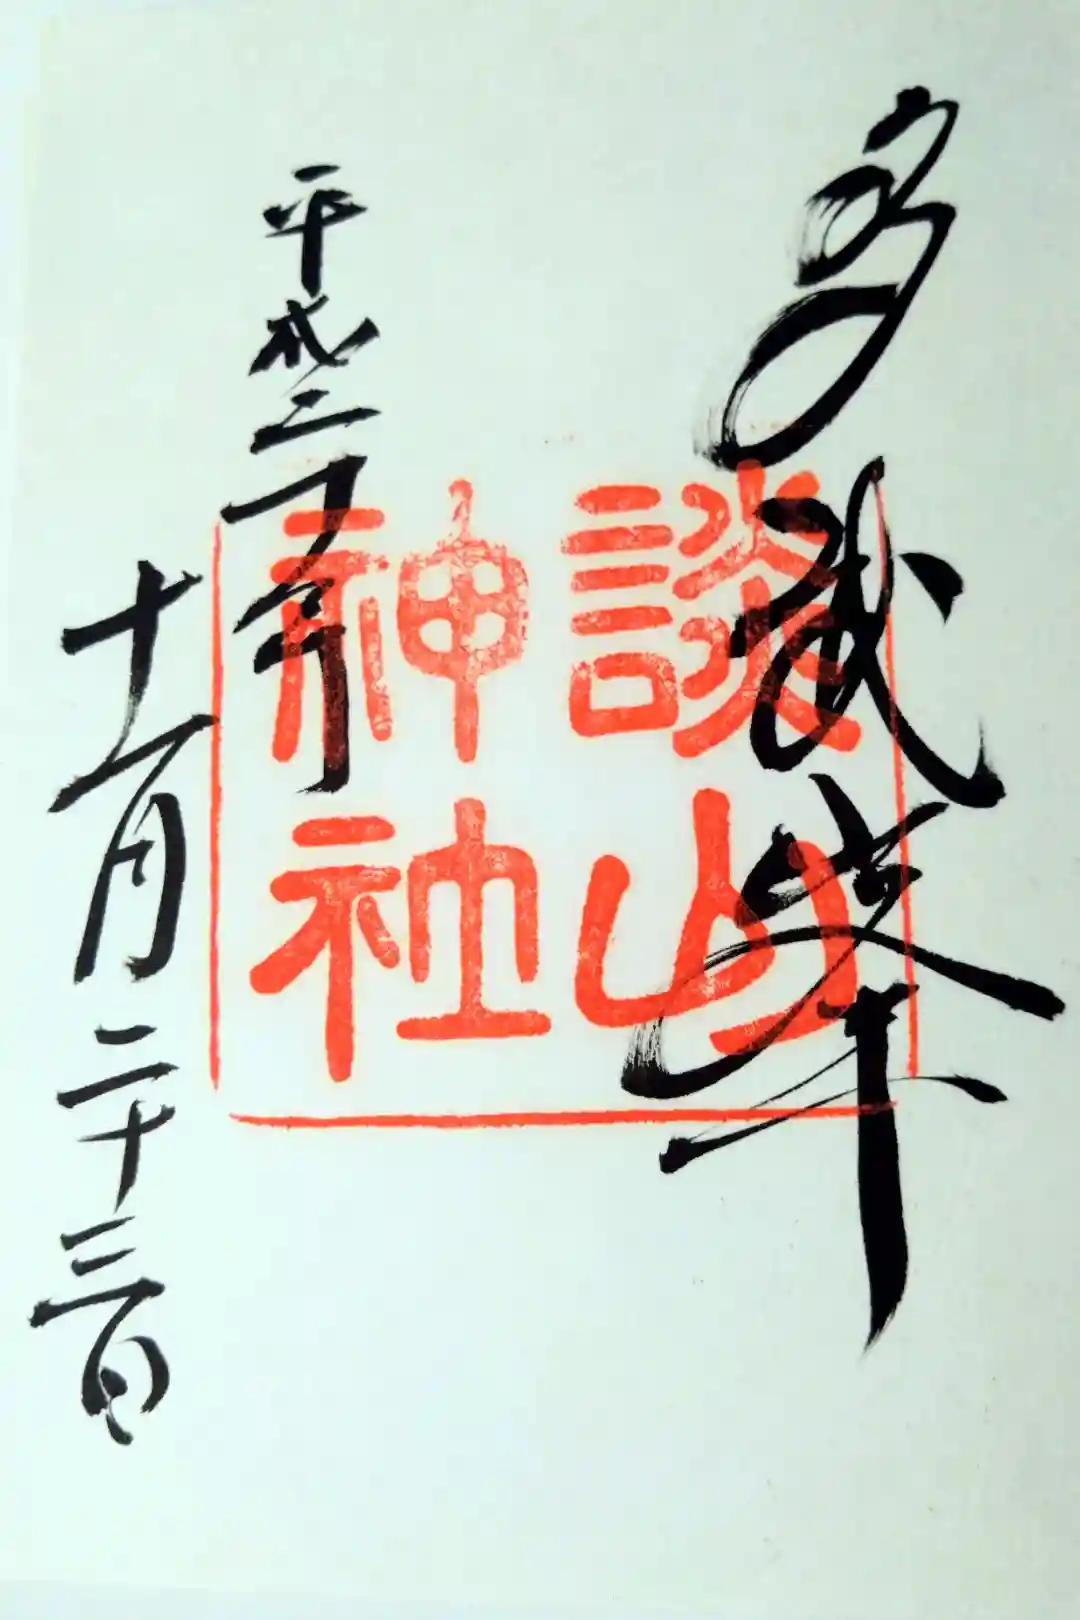 多武峯
談山
神社
平成二十年
十一月二十三日